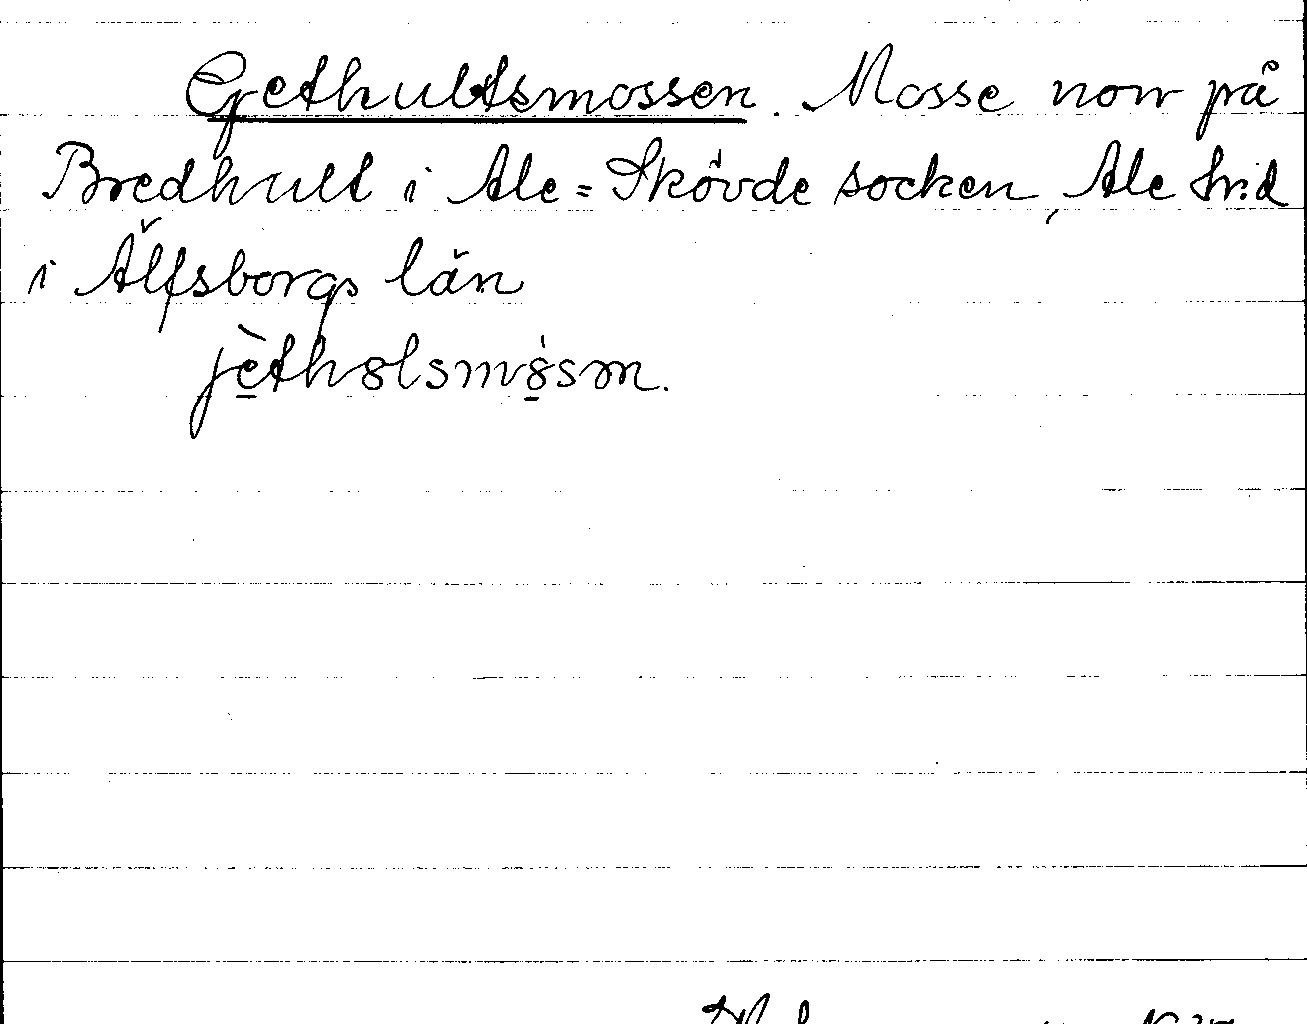 Gethultsmossen. Mosse norr på
Bredhult i Ale=Skövde socken, Ale hr:d
i Älfsborgs län
jèthølsmòsm.